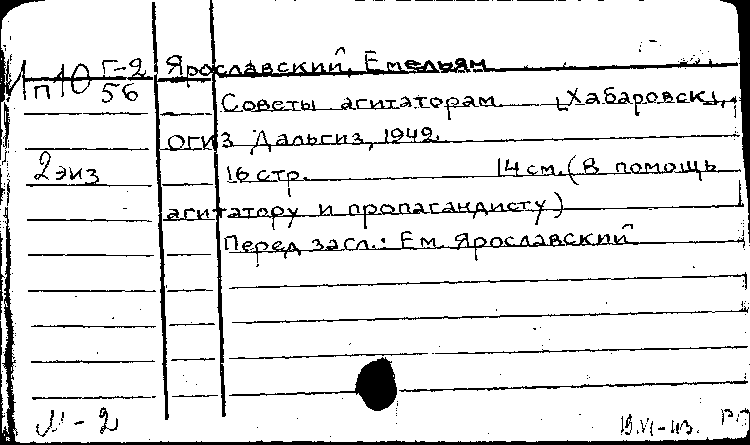 Г-2 Ярославский, Емельян
п10 56
Советы агитаторам [Хабаровск],
ОГИЗ Дальгиз, 1942.
2 экз 16 стр. 14 см. (В помощь
агитатору и пропагандисту)
Перед загл.: Ем. Ярославский
И-2